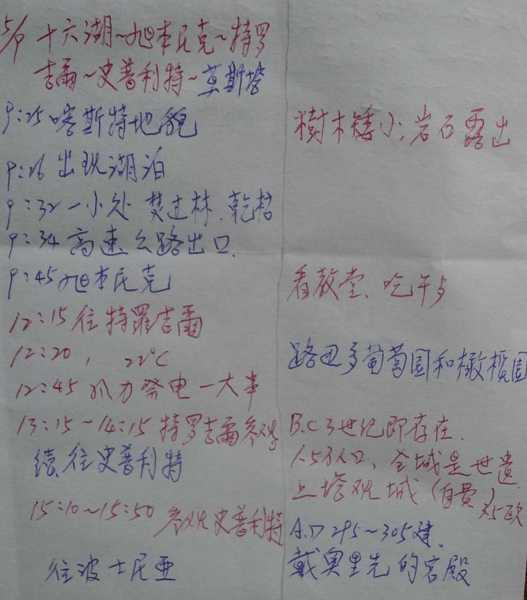 5/9 十六湖~旭本尼克~特罗
吉爾~史普利特~莫斯塔
9:25 喀斯特地貌 樹木矮小,岩石露出
9:26 出现湖泊
9:32 一小处 焚过林,乾枯
9:34 高速公路出口.
9:45 旭本尼克 看教堂、吃午歺
12:15 往特羅吉爾
12:20, 22℃
路边多葡萄园和橄榄园
12:45 风力發电一大車
13:15-14:15 特罗吉爾 B.C 3世纪即存在.
續往史普利特 1.5万人口,全城是世遺
上塔观城(自费
15:10~15:50 参观史普利特
A.D 295~305建.
往波士尼亚 戴奥里先的宫殿